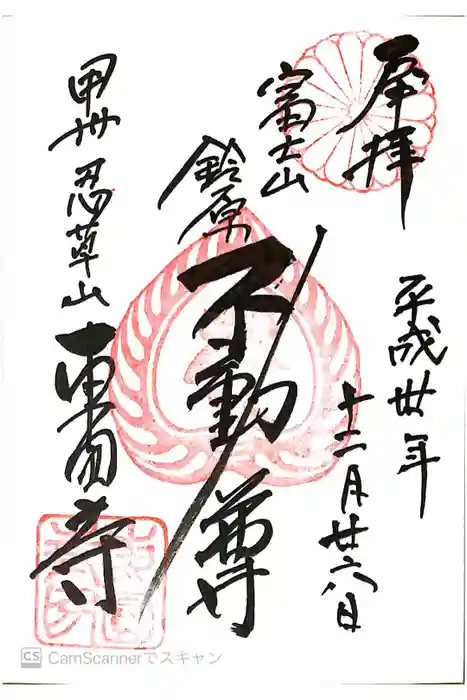 奉拝
平成卅年
十二月廿六日
富士山
鈴原
不動尊
甲州 忍草山
東圓寺
CS CamScannerでスキャン